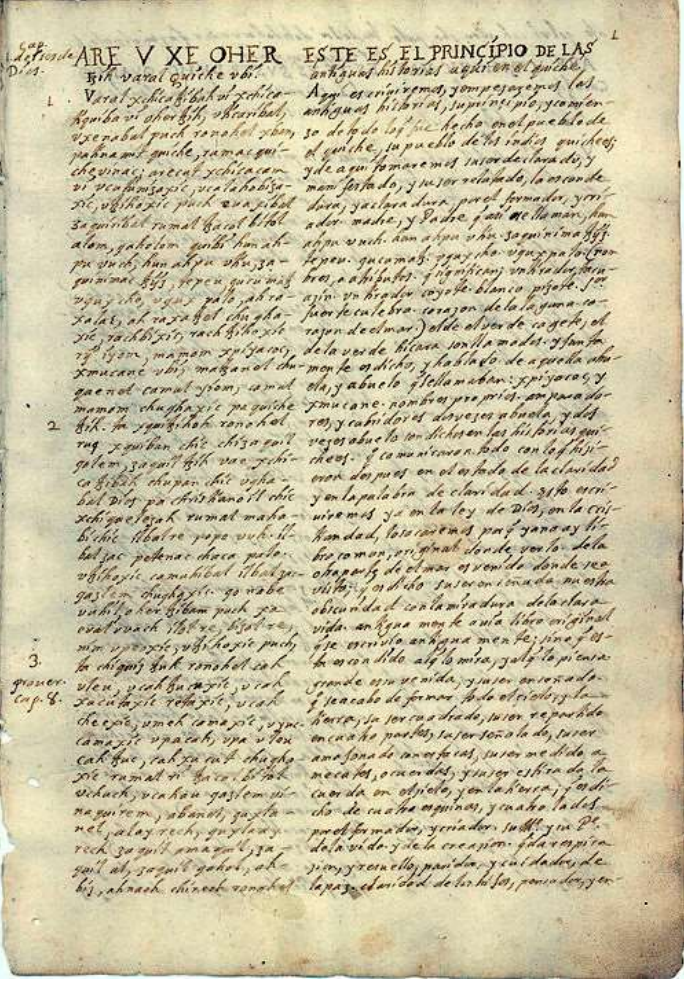 1
ARE V XE OHER
tzih varal Quiche ubi.
Varal xchicatzibah vi xchica-
tiquiba vi oher tzih, uticaribal,
uxenabal puch ronohel xban,
pa tinamit quiche, ramac qui-
che vinac; arecut xchicacam
vi ucutunizaxic, ucalahobiza-
xic, utzihoxic puch euaxibal
zaquiribal rumal tzacol bitol
alom, qaholom quibi hun ah-
pu vuch, hun ahpu utiu, za-
quinimac tzÿs, tepeu, qucumatz
uqux cho, uqux palo, ah ra-
xalaq, ah raxa tzel chugha-
xic, rachbixic, rachtzihoxic
rÿ iyom, mamom xpiyacoc,
xmucane ubi, matzanel chu-
qaenel camul iyom, camul
mamom chughaxic pa quiche
tzih. ta xquitzihoh ronohel
ruq xquiban chic chi zaquil
qolem, zaquil tzih vae xchi-
catzibah chupan chic ugha-
bal Dios pa christianoil chic
xchiquelezah rumal maha-
bi chic ilbalre popo vuh. il-
bal zac petenac chaca palo.
utzihoxic camuhibal ilbal zac-
qazlem chughaxic. go nabe
vuhil, oher tzibam puch xa
eval uvach ilol re, bisol re,
nim upeoxic, utzihoxic puch,
ta chiquiz tzuk ronohel cah
uleu, ucah tzucuxic, ucah
xucutaxic retaxic, ucah
cheexic, umeh camaxic, uyuc-
camaxic upacah, upa uleu
cah tzuc, cah xucut chugha-
xic rumal ri tzacol bitol
uchuch, ucahau qazlem vi-
naquirem, abanel, quxla-
nel, alay rech, quxlaay
rech zaquil amaquil, za-
quil al, zaquil qahol, ah-
biz, ahnaoh chirech ronohel
ESTE ES EL PRINCÍPIO DE LAS
antiguas historias aqui en el quiche
Aqui escriviremos, y empesaremos las
antiguas historias, su principio, y comien-
zo de todo lo q̃ fue hecho en el pueblo de
el quiche, su pueblo de los indios quichees;
y de aqui tomaremos su ser declarado, y
manifestado, y su ser relatado, la escondedura, y aclaradura por el formador, y cri-
ador. madre, y Padre q̃ asi se llaman, hun
ahpu vuch. hun ahpu utiu. zaquinima tzÿs.
tepeu. qucumatz. uqux cho. uqux palo. (nom-
bres, o atributos. q̃ significan; un tirador, tacu-
azin. un tirador coyote. blanco pizote. Sor
fuerte culebra. corazon de la laguna. co-
razon de el mar.) el de el verde caxete, el
de la verde hicara son llamados. y junta
mente es dicho, y hablado. de aquella abu-
ela, y abuelo q̃ se llamaban: xpiyacoc, y
xmucane. nombres proprios. amparado-
res, y cubidores dos vezes abuela, y dos
vezes abuelo son dichos en las historias qui-
chees. q̃ comunicaron todo con lo q̃ hisi-
eron despues en el estado de la claridad
y en la palabra de claridad. Esto escri-
viremos ya en la ley de Dios, en la cris-
tiandad, lo sacaremos porq̃ ya no ay li-
bro comun, original donde verlo. de la
otra parte de el mar es venido donde sea
visto; q̃ es dicho su ser enseñada nuestra
obscuridad con la miradura de la clara
vida. antigua mente avia libro original
q̃ se escrivio antigua mente; sino q̃ es-
ta escondido al q̃ lo mira, y al q̃ lo piensa
grande es su venida, y su ser enseñado.
q̃ se acabo de formar todo el cielo, y la
tierra, su ser cuadrado, su ser repartido
en cuatro partes, su ser señalado, su ser
amojonado con estacas, su ser medido a
mecates, o cuerdas, y su ser estirada la
cuerda en el cielo, y en la tierra; q̃ es di-
cho de cuatro esquinas, y cuatro lados
por el formador, y criador. su Me. y su Pe.
de la vida. y de la creazion. q̃ da respira-
zion, y resuello, paridor, y cuidador, de
la paz. claridad de los hijos, pensador, y en-
1
2
3.
prouer.
cap. 8.